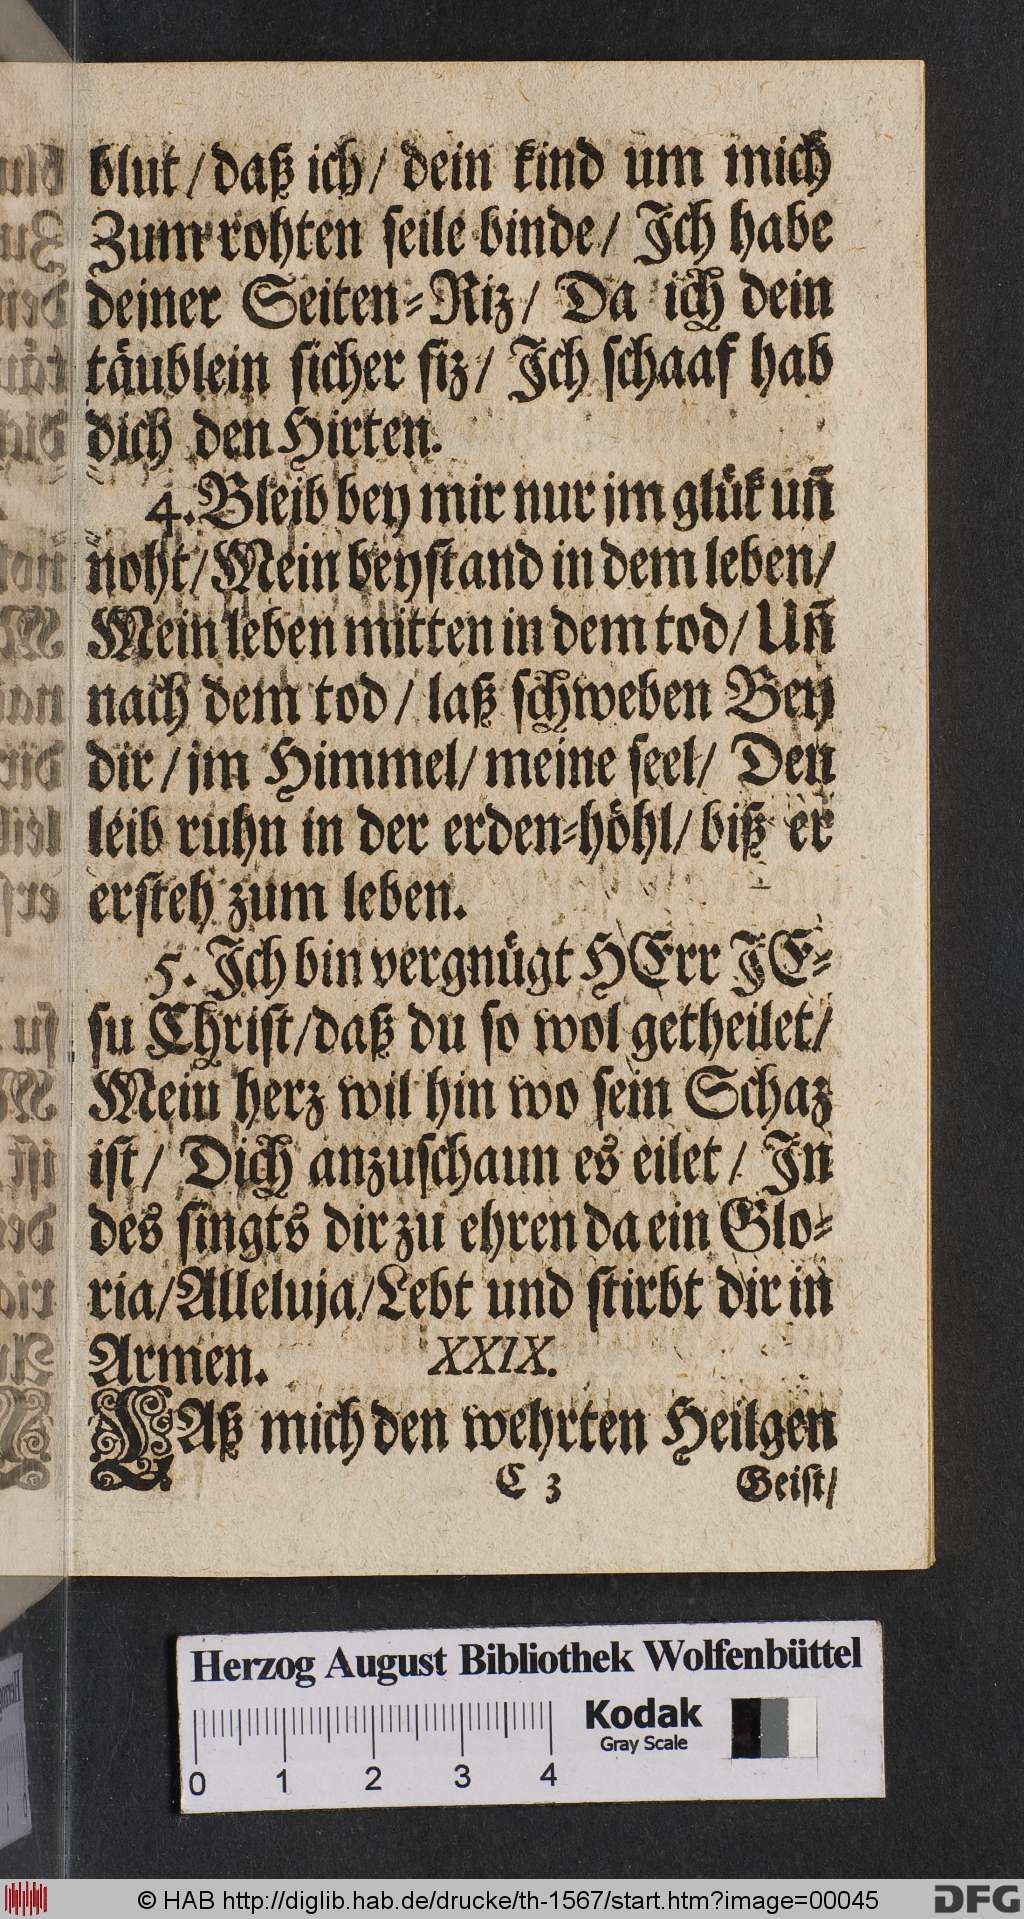 blut / daß ich / dein kind um mich
Zum rohten seile binde / Jch habe
deiner Seiten-Riz / Da ich dein
täublein sicher siz / Jch schaaf hab
dich den Hirten.
4. Bleib bey mir nur im glük uñ
noht / Mein beystand in dem leben /
Mein leben mitten in dem tod / Uñ
nach dem tod / laß schweben Bey
dir / im Himmel / meine seel / Den
leib ruhn in der erden-höhl / biß er
ersteh zum leben.
5. Jch bin vergnügt HErr JE-
su Christ / daß du so wol getheilet /
Mein herz wil hin wo sein Schaz
ist / Dich anzuschaun es eilet / Jn
des singts dir zu ehren da ein Glo-
ria / Alleluja / Lebt und stirbt dir in
Armen. XXIX.
LAß mich den wehrten Heilgen
C 3 Geist /
Herzog August Bibliothek Wolfenbüttel
Kodak
Gray Scale
0 1 2 3 4
© HAB http://diglib.hab.de/drucke/th-1567/start.htm?image=00045
DFG